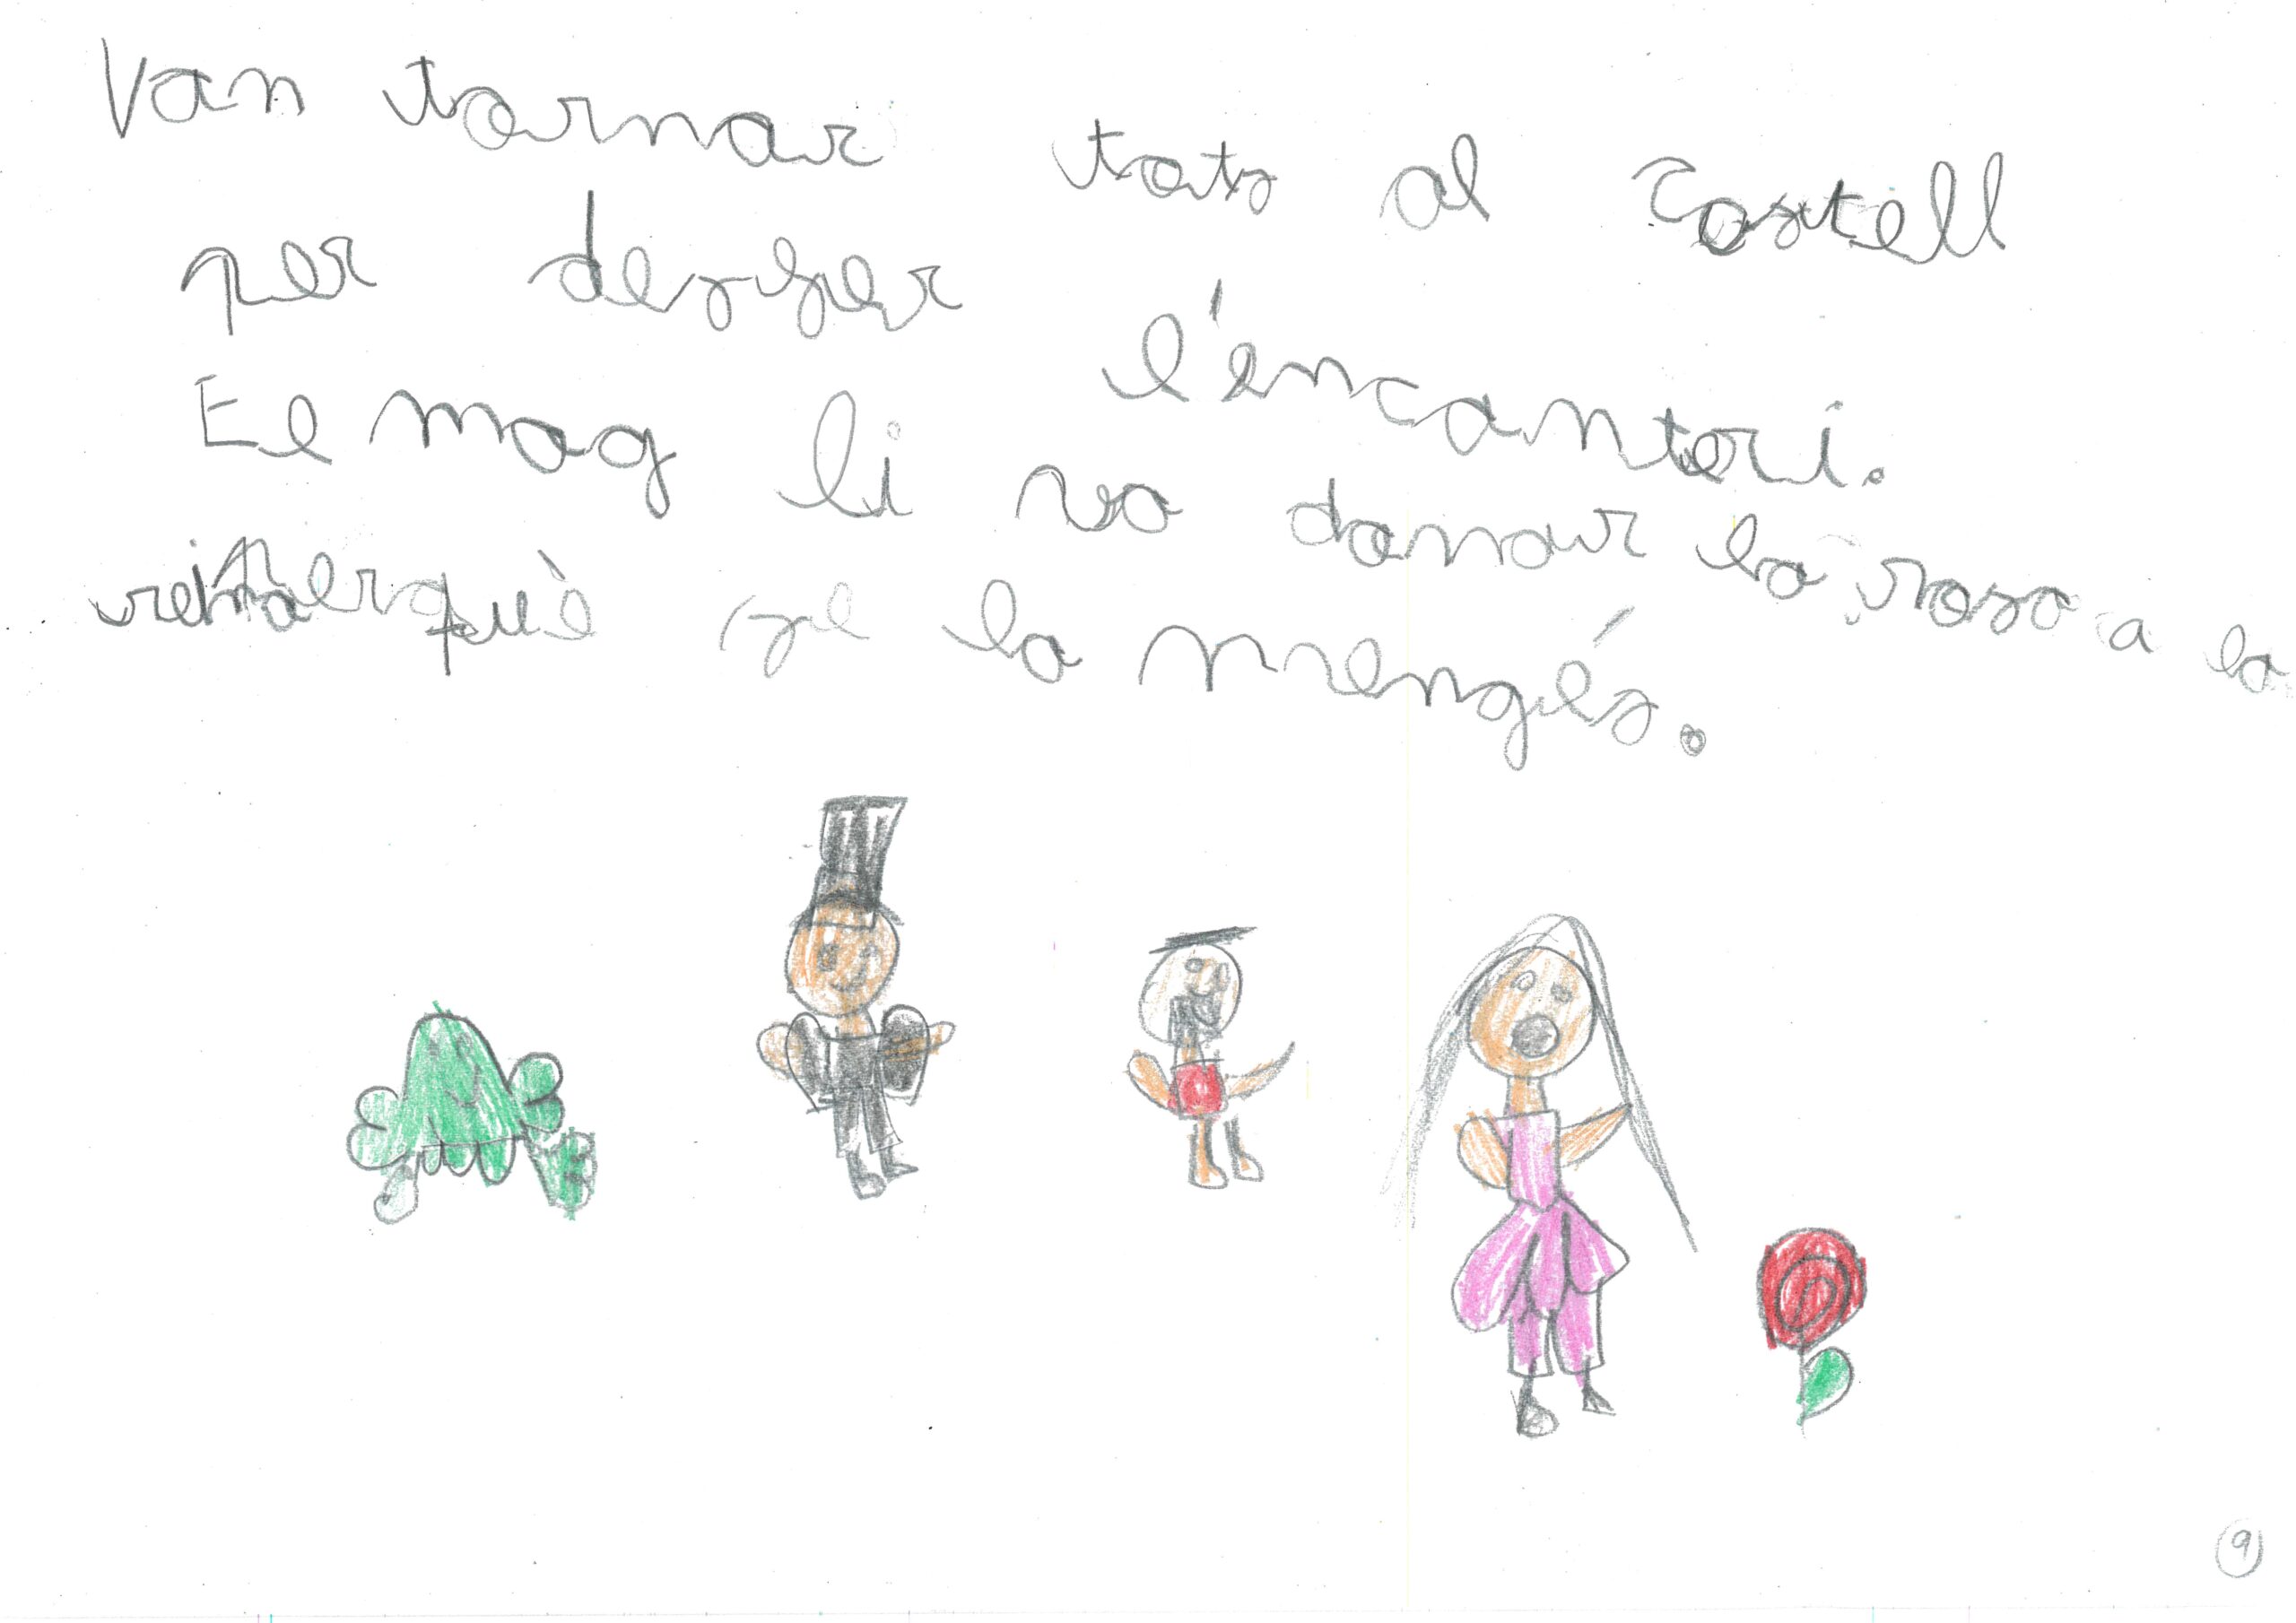 Van tornar tots al castell
per desfer l'encanteri.
El mag li va donar la rosa a la
reina perquè se la mengés.
9